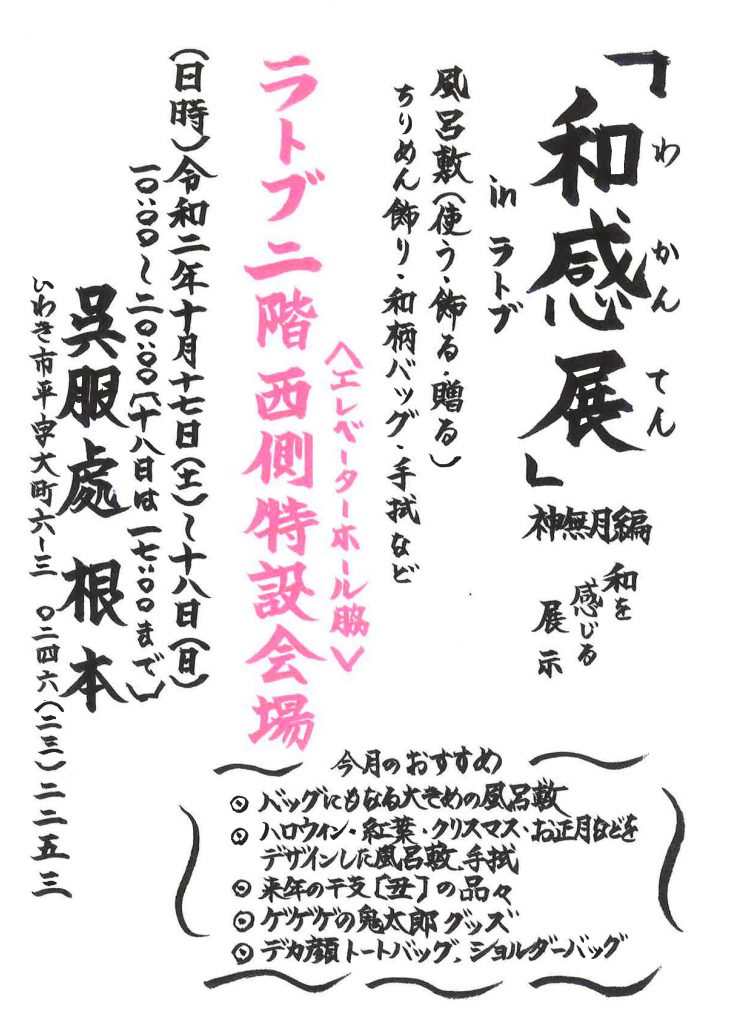 「和感展」
わ かん てん
神無月編
和を
感じる
展示
in ラトブ
風呂敷(使う・飾る・贈る)
ちりめん飾り・和柄バッグ・手拭など
<エレベーターホール脇>
ラトブ二階西側特設会場
(日時)令和二年十月十七日(土)~十八日(日)
一〇:〇〇~二〇:〇〇〔十八日は一七:〇〇まで〕
呉服處 根本
いわき市平字大町六-三 〇二四六(二三)二二五三
今月のおすすめ
◎ バッグにもなる大きめの風呂敷
◎ ハロウィン・紅葉・クリスマス・お正月などを
デザインした風呂敷、手拭
◎ 来年の干支[丑]の品々
◎ ゲゲゲの鬼太郎グッズ
◎ デカ顔トートバッグ、ショルダーバッグ